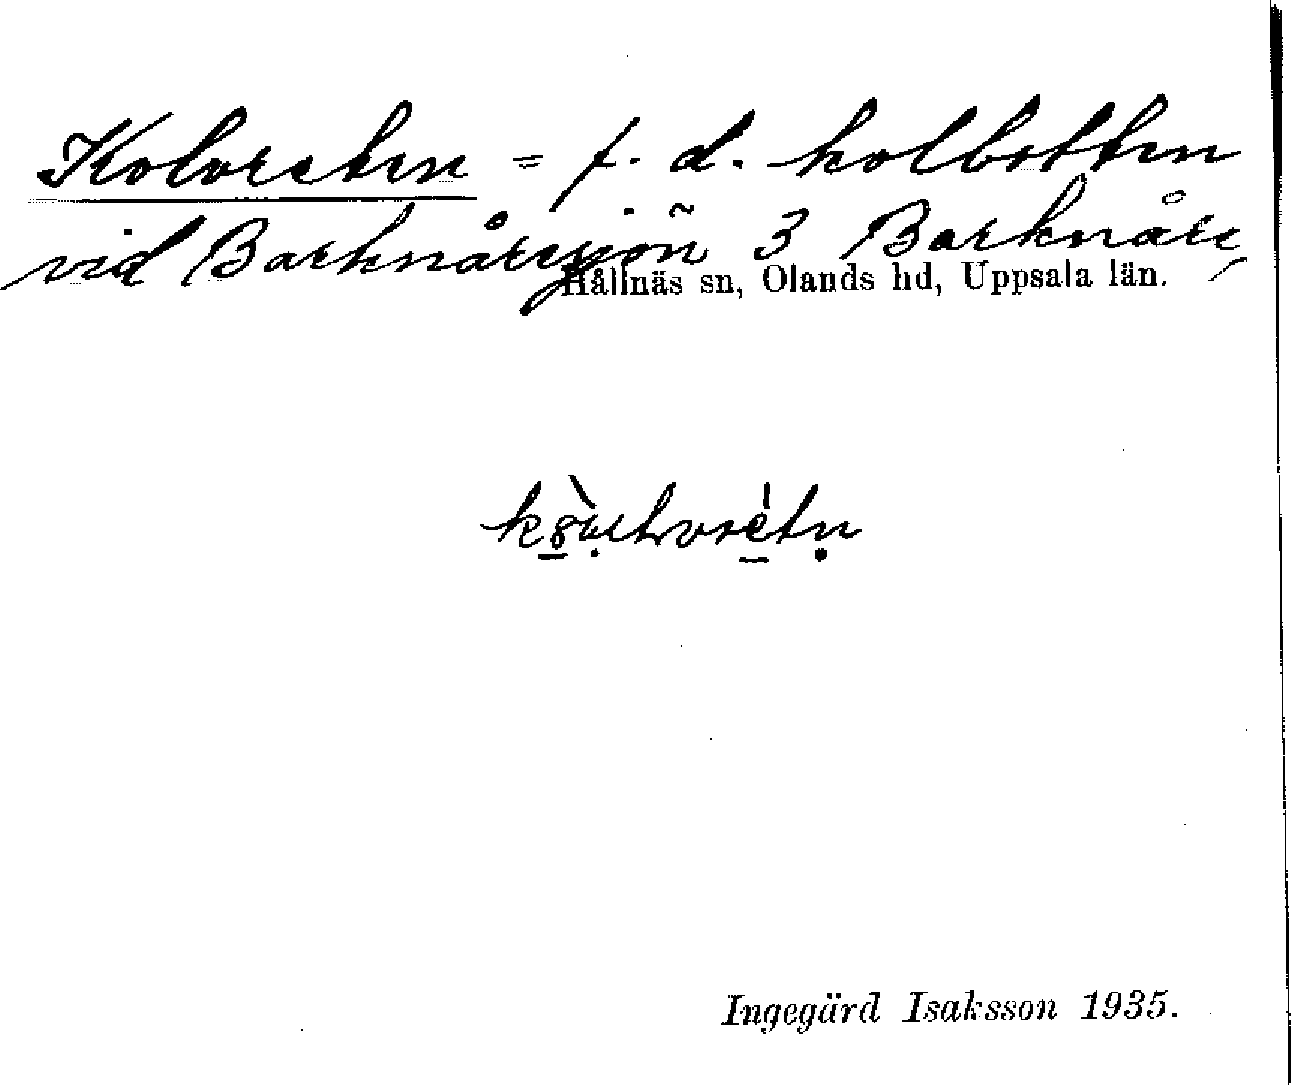 Kolvreten = f. d. kolbotten
vid Barknåresjön 3 Barknåre,
Hållnäs sn, Olands hd, Uppsala län.
Ingegärd Isaksson 1935.